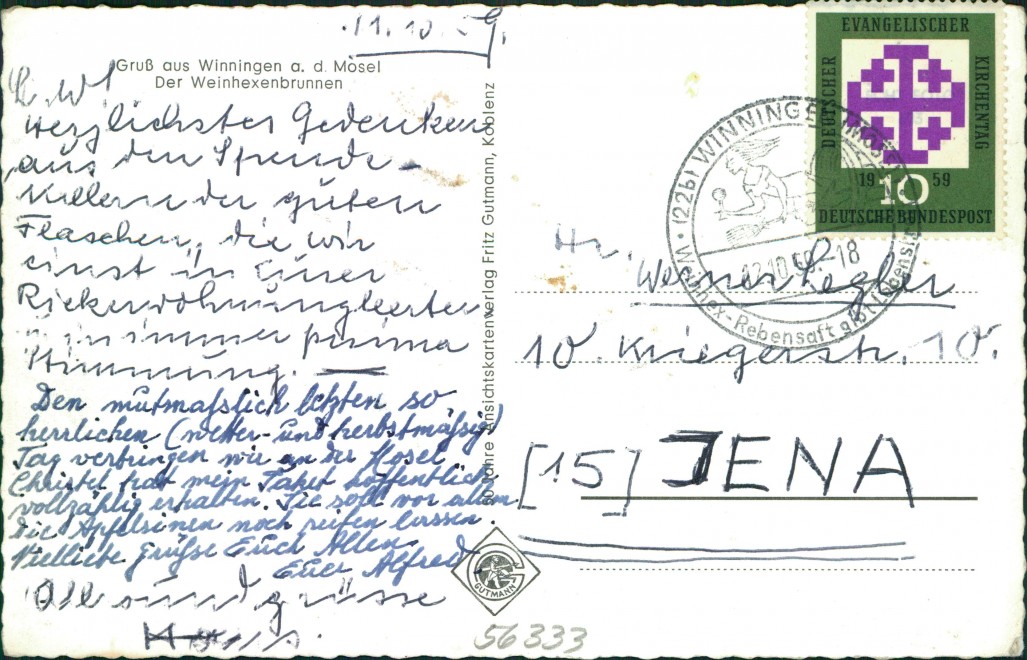 11.10.59.
Gruß aus Winningen a. d. Mosel
Der Weinhexenbrunnen
L. W!
Herzlichstes Gedenken
aus den
Kellern der guten
Flaschen, die wir
einst in Eurer
in immer prima
Stimmung.
Den mutmaßlich letzten so
herrlichen (wetter- und herbstmäßig)
Tag verbringen wir an der Mosel
Christel hat mein Paket hoffentlich
vollzählig erhalten. Sie soll vor allem
die Apfelsinen noch reifen lassen.
Vielliebe Grüße Euch Allen
Euer Alfred
grüsse
50 Jahre Ansichtskartenverlag Fritz Gutmann, Koblenz
GUTMANN
56333
DEUTSCHER
EVANGELISCHER
KIRCHENTAG
1959
10
DEUTSCHE BUNDESPOST
(22b) WINNINGEN (MOSEL)
12.10.59.-18
Weinhex-Rebensaft gibt Lebenskraft
Hr.
Werner Legler
10. Kriegerstr. 10.
[15] JENA